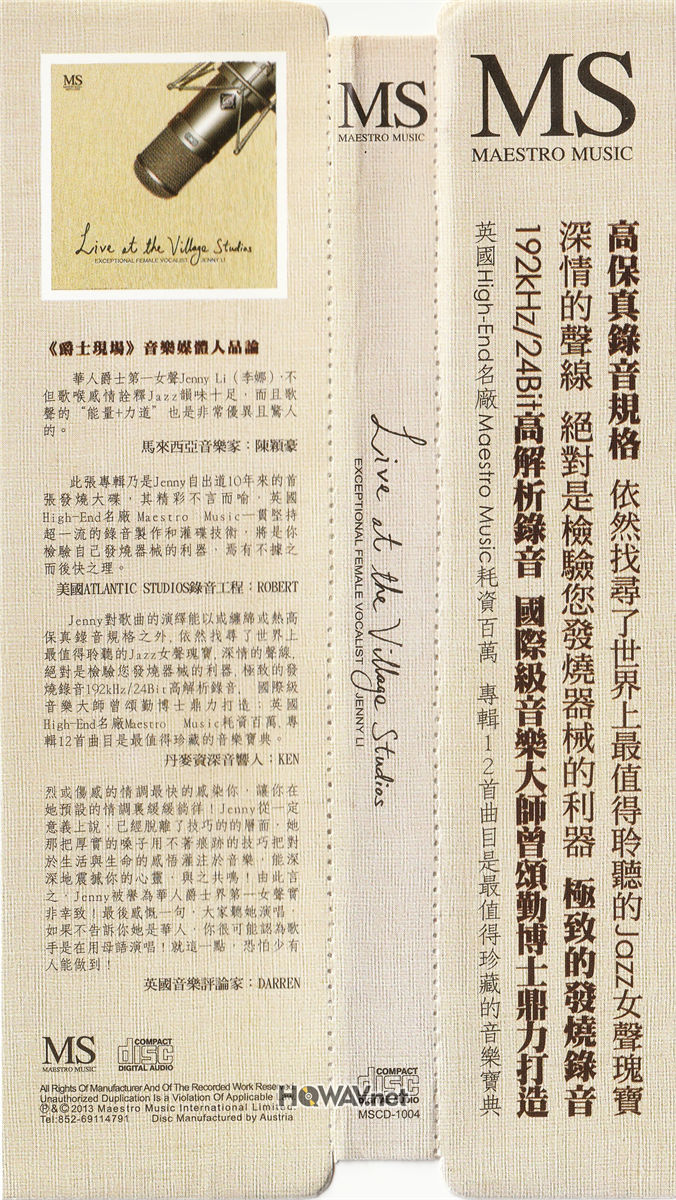 MS
MAESTRO MUSIC
Live at the Village Studios
EXCEPTIONAL FEMALE VOCALIST JENNY LI
《爵士現場》音樂媒體人品論
華人爵士第一女聲Jenny Li（李娜），不
但歌喉感情詮釋Jazz韻味十足，而且歌
聲的“能量+力道”也是非常優異且驚人
的。
馬來西亞音樂家：陳穎豪
此張專輯乃是Jenny自出道10年來的首
張發燒大碟，其精彩不言而喻，英國
High-End名廠 Maestro Music一貫堅持
超一流的錄音製作和灌碟技術，將是你
檢驗自己發燒器械的利器，焉有不據之
而後快之理。
美國ATLANTIC STUDIOS錄音工程：ROBERT
Jenny對歌曲的演繹能以或纏綿或熱高
保真錄音規格之外，依然找尋了世界上
最值得聆聽的Jazz女聲瑰寶，深情的聲線，
絕對是檢驗您發燒器械的利器，極致的發
燒錄音192kHz/24Bit高解析錄音， 國際級
音樂大師曾頌勤博士鼎力打造；英國
High-End名廠Maestro Music耗資百萬，專
輯12首曲目是最值得珍藏的音樂寶典。
丹麥資深音響人：KEN
烈或傷感的情調最快的感染你，讓你在
她預設的情調裏緩緩徜徉！Jenny從一定
意義上說，已經脫離了技巧的的層面，她
那把厚實的嗓子用不著痕跡的技巧把對
於生活與生命的感悟灌注於音樂，能深
深地震撼你的心靈，與之共鳴！由此言
之，Jenny被譽為華人爵士界第一女聲實
非幸致！最後感慨一句，大家聽她演唱，
如果不告訴你她是華人，你很可能認為歌
手是在用母語演唱！就這一點，恐怕少有
人能做到！
英國音樂評論家：DARREN
MS
MAESTRO MUSIC
COMPACT
disc
DIGITAL AUDIO
All Rights Of Manufacturer And Of The Recorded Work Reserved
Unauthorized Duplication Is a Violation Of Applicable
℗&©2013 Maestro Music International Limited
Tel:852-69114791 Disc Manufactured by Austria
HOWAV.net
MS
MAESTRO MUSIC
Live at the Village Studios
EXCEPTIONAL FEMALE VOCALIST JENNY LI
COMPACT
disc
MSCD-1004
MS
MAESTRO MUSIC
高保真錄音規格 依然找尋了世界上最值得聆聽的Jazz女聲瑰寶
深情的聲線 絕對是檢驗您發燒器械的利器 極致的發燒錄音
192kHz/24Bit高解析錄音 國際級音樂大師曾頌勤博士鼎力打造
英國High-End名廠Maestro Music耗資百萬 專輯12首曲目是最值得珍藏的音樂寶典